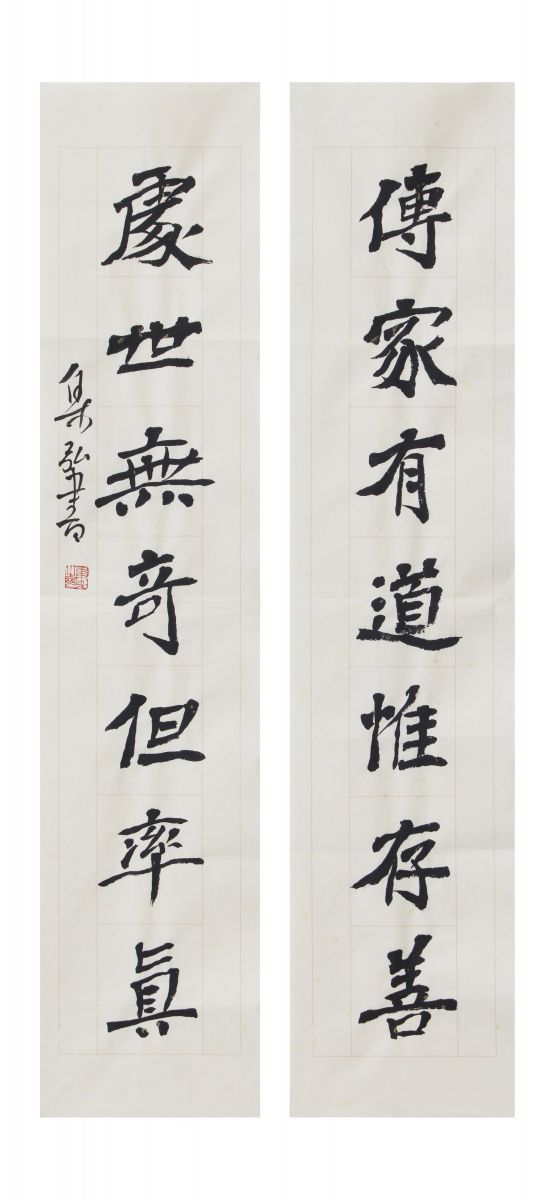 傳家有道惟存善
處世無奇但率眞
集弘書